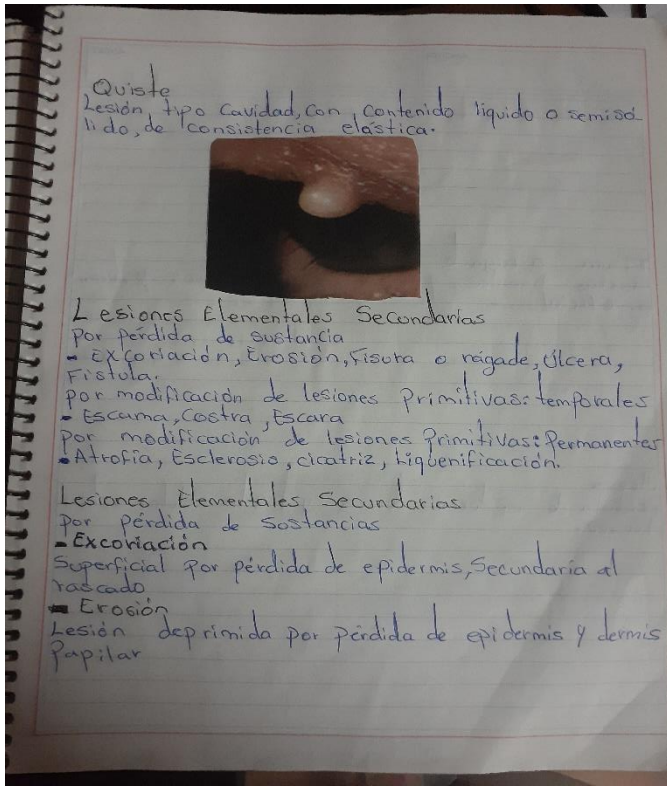 Quiste
Lesión, tipo cavidad, con contenido líquido o semisó-
lido, de consistencia elástica.
Lesiones Elementales Secundarias
Por pérdida de sustancia
- Excoriación, Erosión, Fisura o rágade, Úlcera,
Fistula.
por modificación de lesiones primitivas: temporales
• Escama, Costra, Escara
Por modificación de lesiones primitivas: Permanentes
• Atrofia, Esclerosis, cicatriz, Liquenificación.
Lesiones Elementales Secundarias
por pérdida de sostancias
- Excoriación
Superficial por pérdida de epidermis, Secundaria al
rascado
- Erosión
Lesión deprimida por pérdida de epidermis y dermis
Papilar